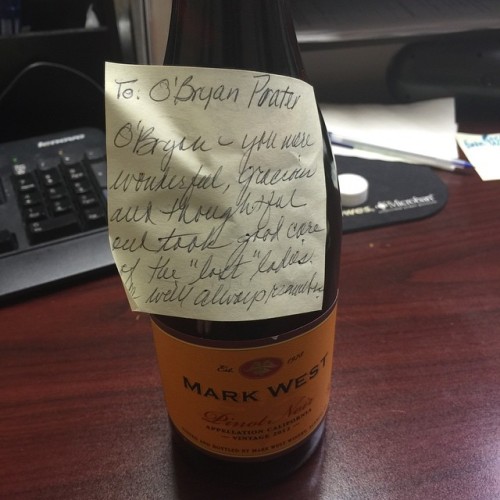 To: O'Bryan Porter
O'Bryan - you were
wonderful, gracious
and thoughtful
and took good care
of the "lost" ladies.
we'll always remember
Est. 1978
MARK WEST
Pinot Noir
APPELLATION CALIFORNIA
VINTAGE 2013
lenovo